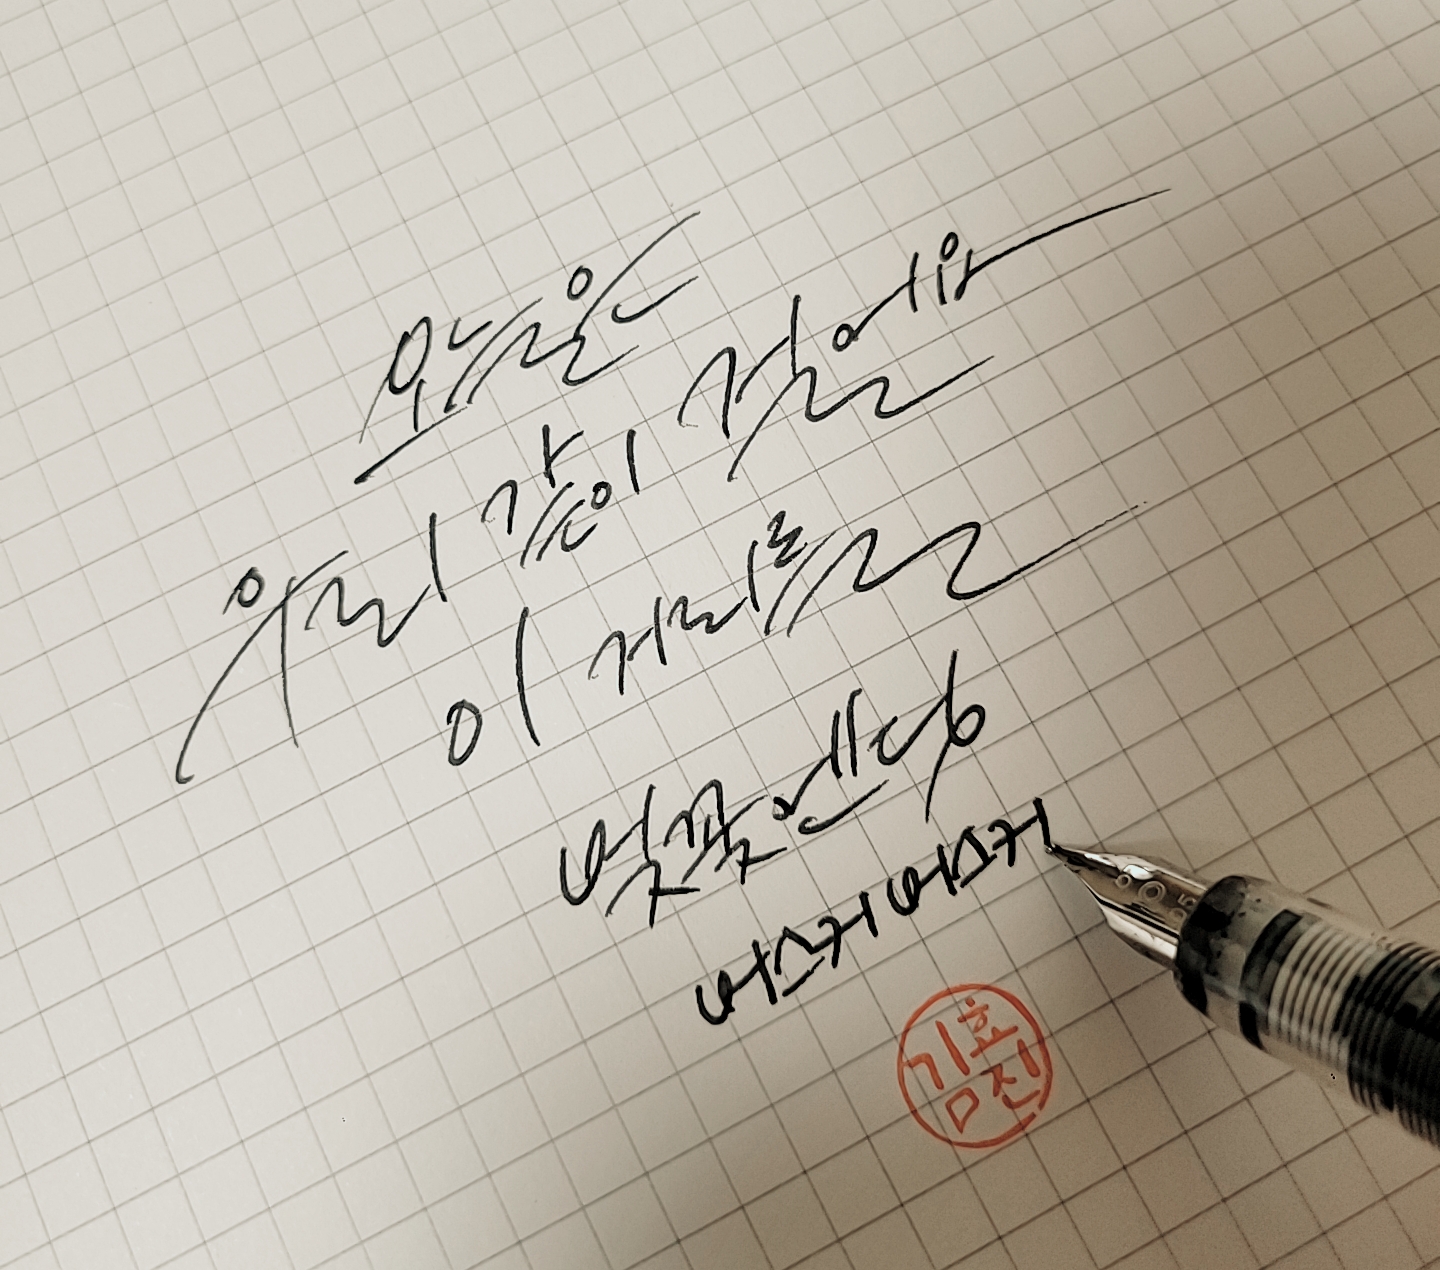 오늘은
우리 같이 걸어요
이 거리를
벚꽃엔딩
버스커 버스커
김효진